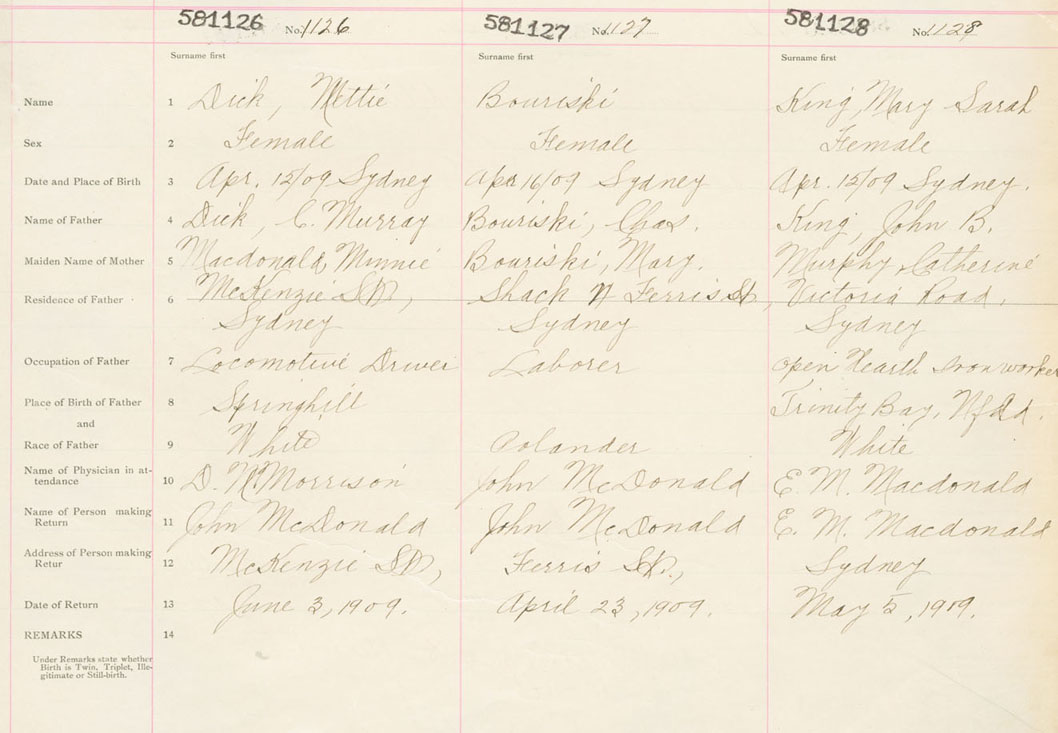 581126 No. 1126 581127 No. 1127 581128 No. 1128
Surname first Surname first Surname first
Name 1 Dick, Mettie Bouriski King, Mary Sarah
Sex 2 Female Female Female
Date and Place of Birth 3 Apr. 15/09 Sydney Apr 16/09 Sydney Apr. 15/09 Sydney.
Name of Father 4 Dick, C. Murray Bouriski, Chas. King, John B.
Maiden Name of Mother 5 Macdonald, Minnie Bouriski, Mary. Murphy, Catherine
Residence of Father 6 McKenzie St., Shack N Ferris St, Victoria Road,
Sydney Sydney Sydney
Occupation of Father 7 Locomotive Driver Laborer Open Hearth Iron worker
Place of Birth of Father 8 Springhill Trinity Bay, Nfld.
and
Race of Father 9 White Polander White
Name of Physician in at-
tendance 10 D. McMorrison John McDonald E. M. Macdonald
Name of Person making
Return 11 John McDonald John McDonald E. M. Macdonald
Address of Person making
Retur 12 McKenzie St., Ferris St., Sydney
Date of Return 13 June 3, 1909. April 23, 1909. May 5, 1909.
REMARKS 14
Under Remarks state whether
Birth is Twin, Triplet, Ille-
gitimate or Still-birth.